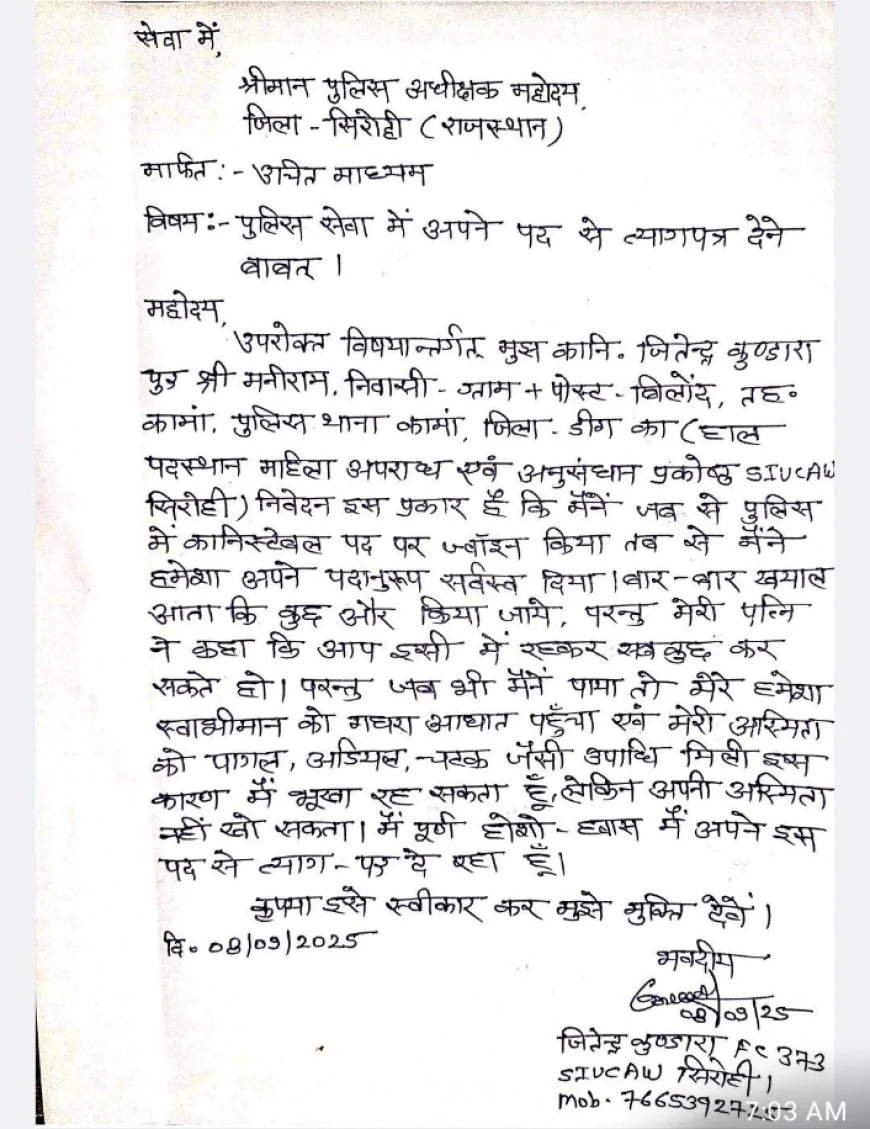 सेवा में,
श्रीमान पुलिस अधीक्षक महोदय,
जिला - सिरोही (राजस्थान)
मार्फत :- उचित माध्यम
विषय :- पुलिस सेवा में अपने पद से त्यागपत्र देने
बाबत् ।
महोदय,
उपरोक्त विषयान्तर्गत् मुझ कानि. जितेन्द्र कुण्डारा
पुत्र श्री मनीराम, निवासी - ग्राम + पोस्ट - बिलोंद, तह॰
कामां, पुलिस थाना कामां, जिला - डीग का (हाल
पदस्थान महिला अपराध एवं अनुसंधान प्रकोष्ठ SIUCAW
सिरोही) निवेदन इस प्रकार है कि मैंनें जब से पुलिस
में कानिस्टेबल पद पर ज्वॉइन किया तब से मैंने
हमेशा अपने पदानुरूप सर्वस्व दिया । बार-बार खयाल
आता कि कुछ और किया जाये, परन्तु मेरी पत्नि
ने कहा कि आप इसी में रहकर सब कुछ कर
सकते हो । परन्तु जब भी मैंनें पाया तो मेरे हमेशा
स्वाभीमान को गघरा आघात पहुँचा एवं मेरी अस्मिता
को पागल, अडियल, चटक जैसी उपाधि मिली इस
कारण मैं भूखा रह सकता हूँ, लेकिन अपनी अस्मिता
नहीं खो सकता । मैं पूर्ण होशो-हवास में अपने इस
पद से त्याग-पत्र दे रहा हूँ।
कृपया इसे स्वीकार कर मुझे मुक्ति देवें ।
दि॰ 08/09/2025
भवदीय
08/09/25
जितेन्द्र कुण्डारा FC 373
SIUCAW सिरोही ।
Mob. 76653927
7:03 AM